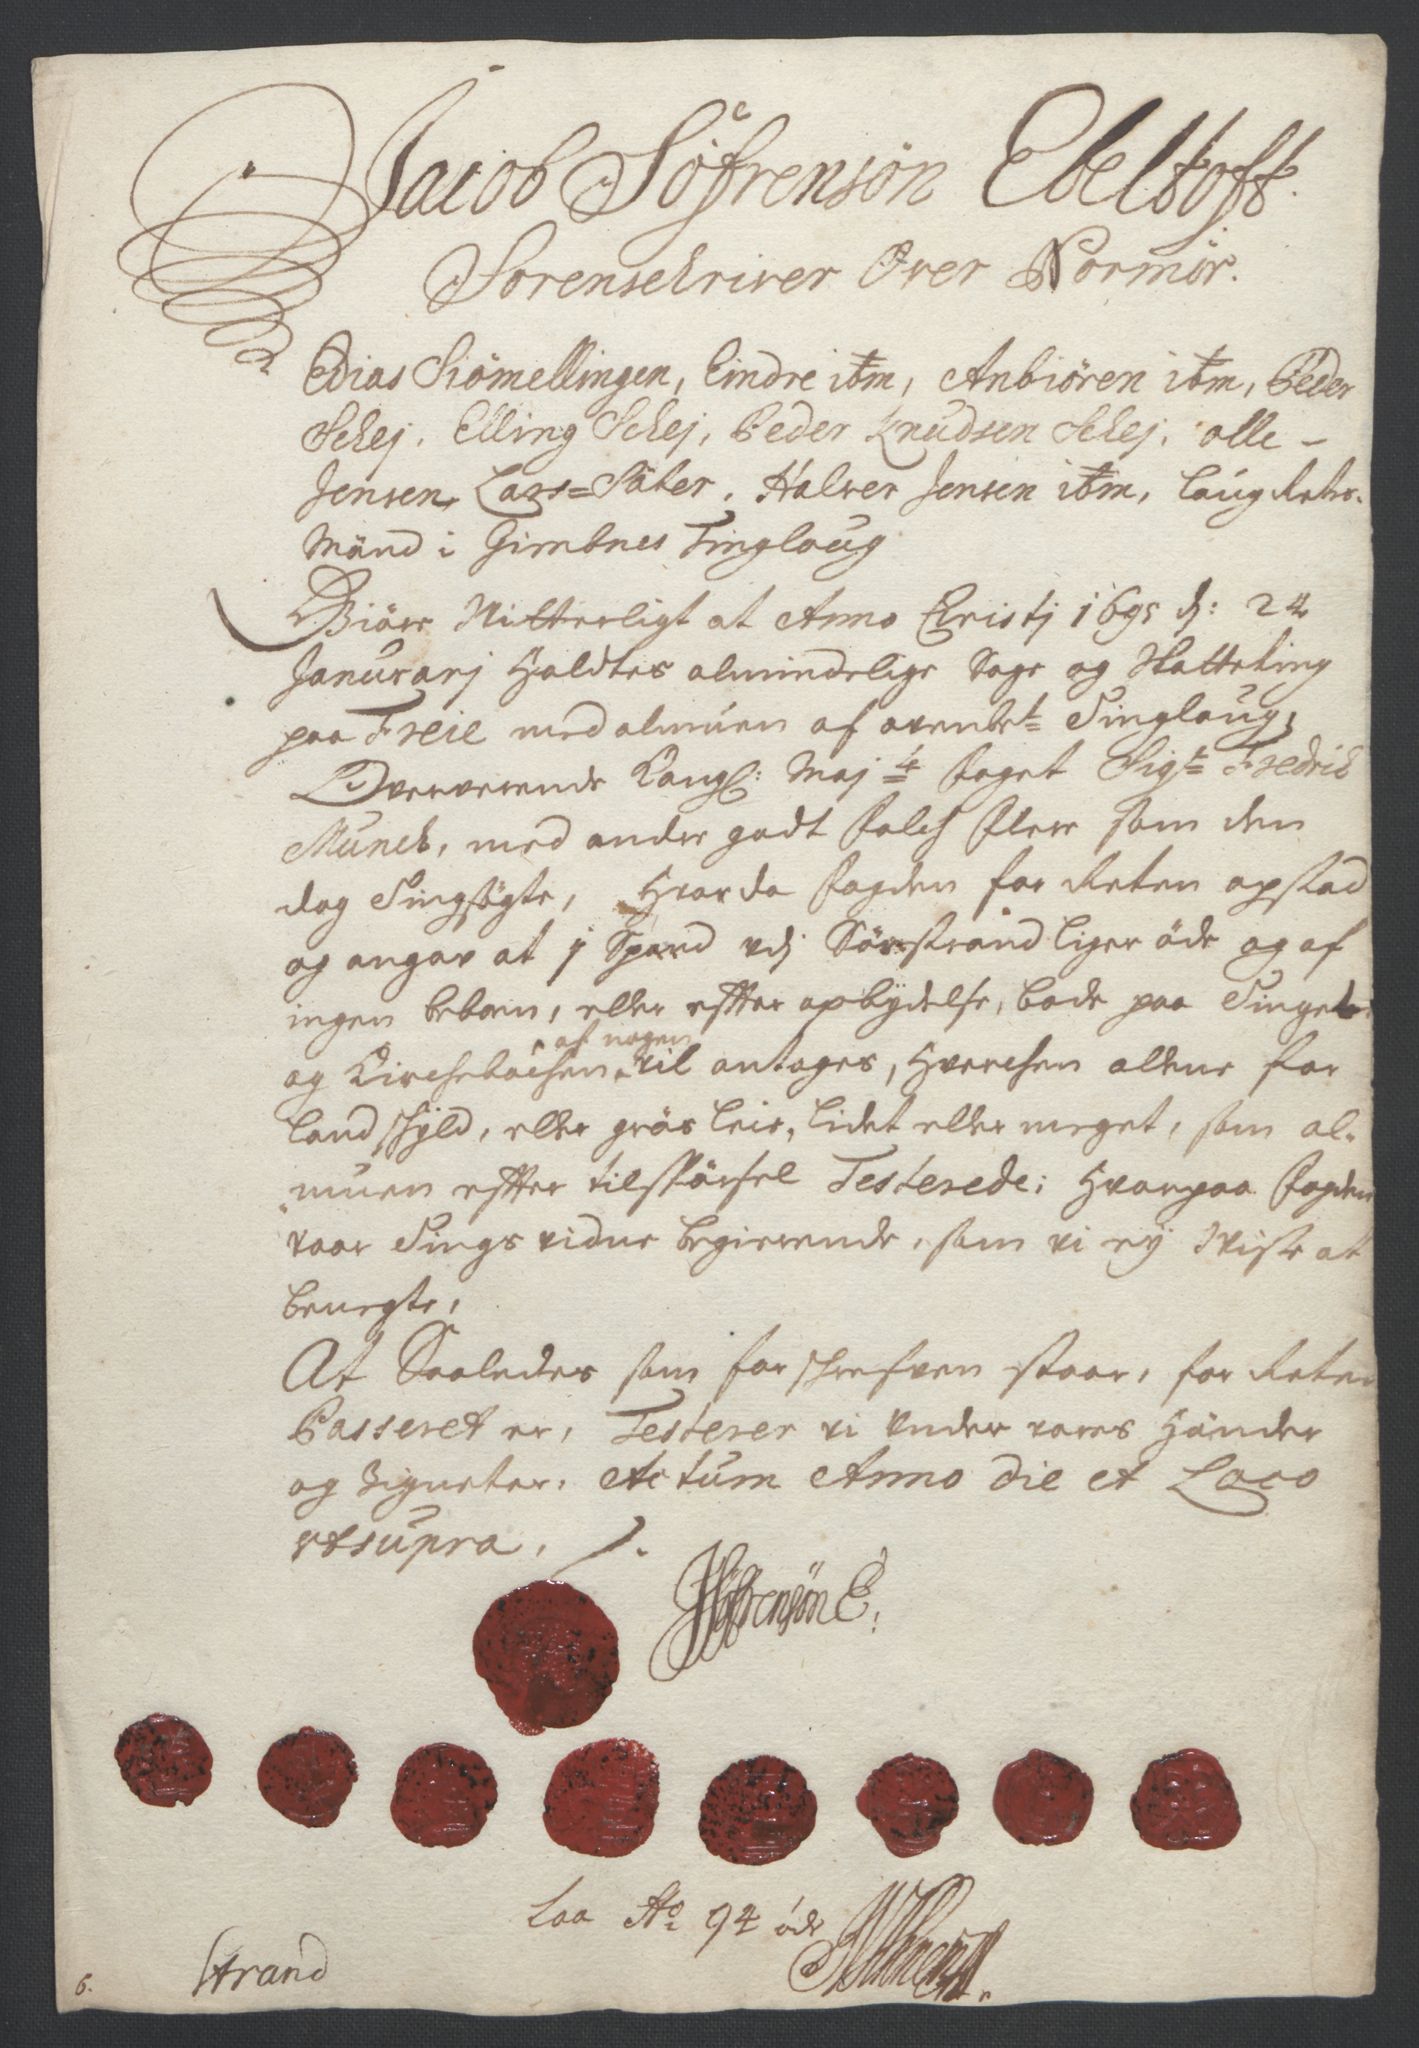 Jacob Söfrensön Ebeltoft.
Sorenschriver Över Normör.
Elias Siömellingen, Eindre itm, Anbiören itm, Peder
Schej, Elling Schej, Peder Knudsen Schej, olle
Jensen Lars=Säter, Halver Jensen itm, Laug Rets-
Mänd i Gimbnes Tinglaug
Giöre Witterligt at Anno Christj 1695 dj: 24
Januvarj Holdtes almindelige Sage og Skatteting
paa Freie med almuen af ovenbete Tinglaug,
Oververende Kongl: Maj:ts foget Sigr Fredrich
Munch, med andre godt folch flere som den
dag Tingsögte, Hvor da fogden for Reten opstod
og angav at j Spand vdj Sörstrand liger öde og af
ingen beboen, eller effter opbydelse, bode paa Tinget
og Kirchebachen af nogen vil antages, Hverchen allene for
Landschyld, eller gräs Leie, lidet eller meget, som al-
muen effter tilspörsel Testerede; Hvorpaa fogden
vaar Tings vidne begierende, som vi ey viste at
benegte,
At Saaledes som forschrefven staar, for Reten
Passeret er, Testerer vi Under vores Händer
og Signeter. Actum Anno die et Loco
vtsupra.
JSöfrensön E:
Laa Ao 94 öde
Strand
6.